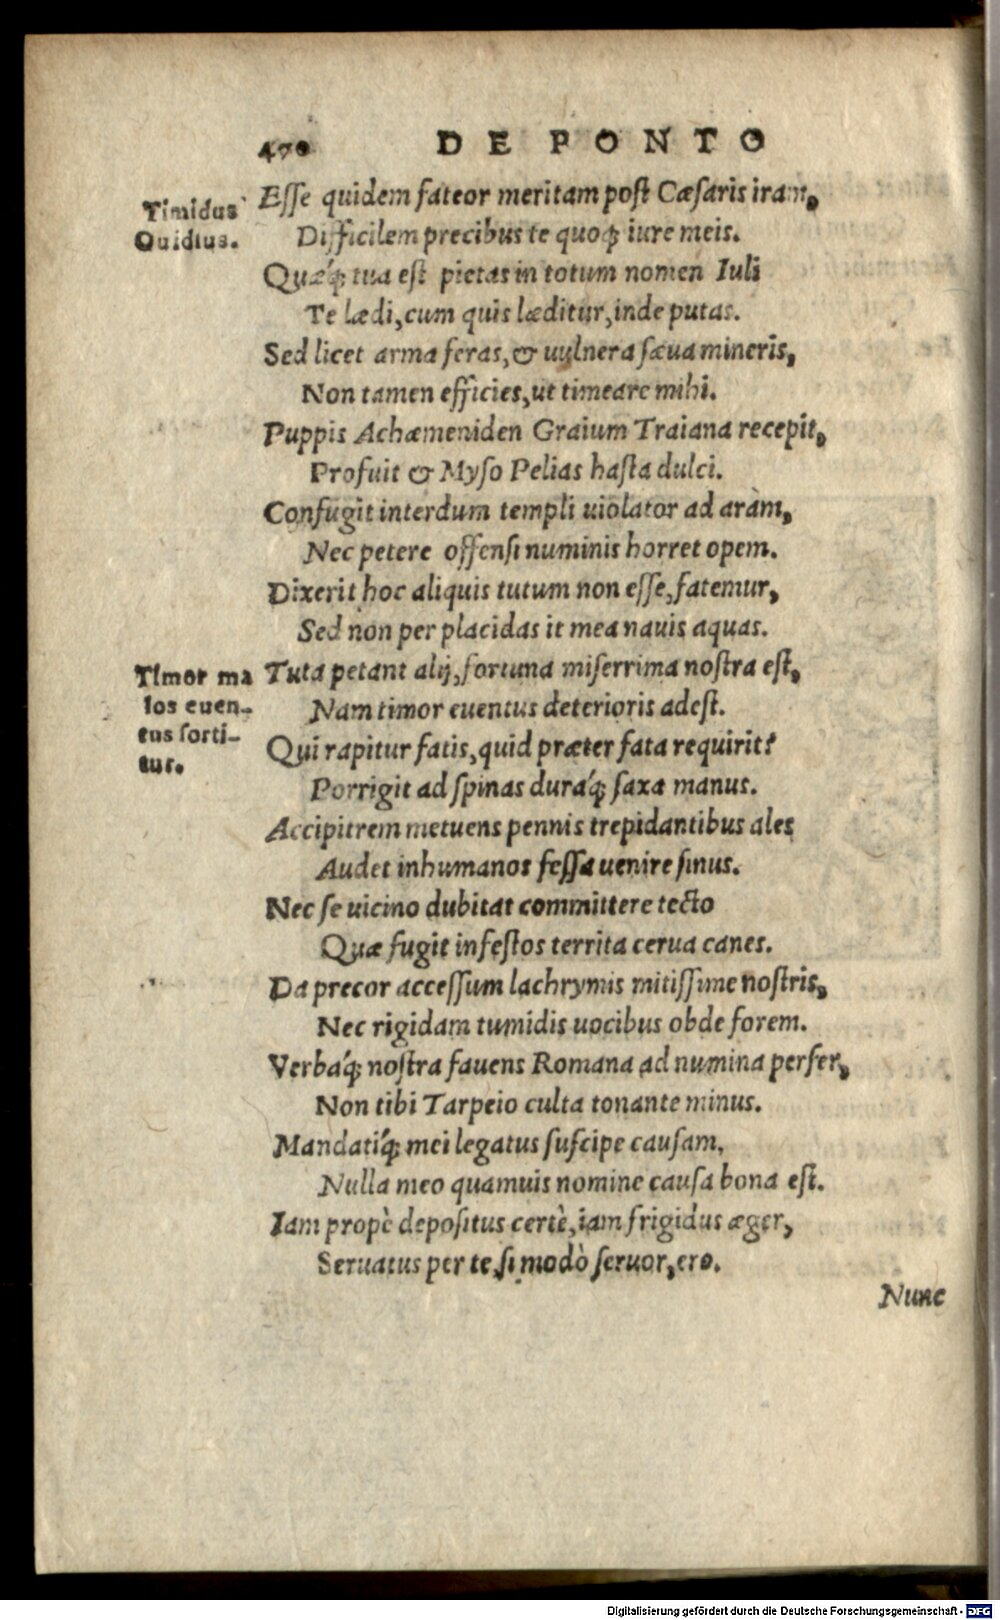 470 DE PONTO
Timidus
Ouidius.
Esse quidem fateor meritam post Cæsaris iram,
Difficilem precibus te quoq; iure meis.
Quæq́; tua est pietas in totum nomen Iuli
Te lædi, cum quis læditur, inde putas.
Sed licet arma feras, & uulnera sæua mineris,
Non tamen efficies, ut timeare mihi.
Puppis Achæmeniden Graium Traiana recepit,
Profuit & Myso Pelias hasta dulci.
Confugit interdum templi uiolator ad aràm,
Nec petere offensi numinis horret opem.
Dixerit hoc aliquis tutum non esse, fatemur,
Sed non per placidas it mea nauis aquas.
Timor ma
los euen-
tus sorti-
tur.
Tuta petant alij, fortuna miserrima nostra est,
Nam timor euentus deterioris adest.
Qui rapitur fatis, quid præter fata requirit?
Porrigit ad spinas duraq́; saxa manus.
Accipitrem metuens pennis trepidantibus ales
Audet inhumanos fessa uenire sinus.
Nec se uicino dubitat committere tecto
Quæ fugit infestos territa cerua canes.
Da precor accessum lachrymis mitissime nostris,
Nec rigidam tumidis uocibus obde forem.
Verbaq́; nostra fauens Romana ad numina perfer,
Non tibi Tarpeio culta tonante minus.
Mandatiq́; mei legatus suscipe causam,
Nulla meo quamuis nomine causa bona est.
Iam propè depositus certè, iam frigidus æger,
Seruatus per te, si modò seruor, ero.
Nunc
Digitalisierung gefördert durch die Deutsche Forschungsgemeinschaft - DFG